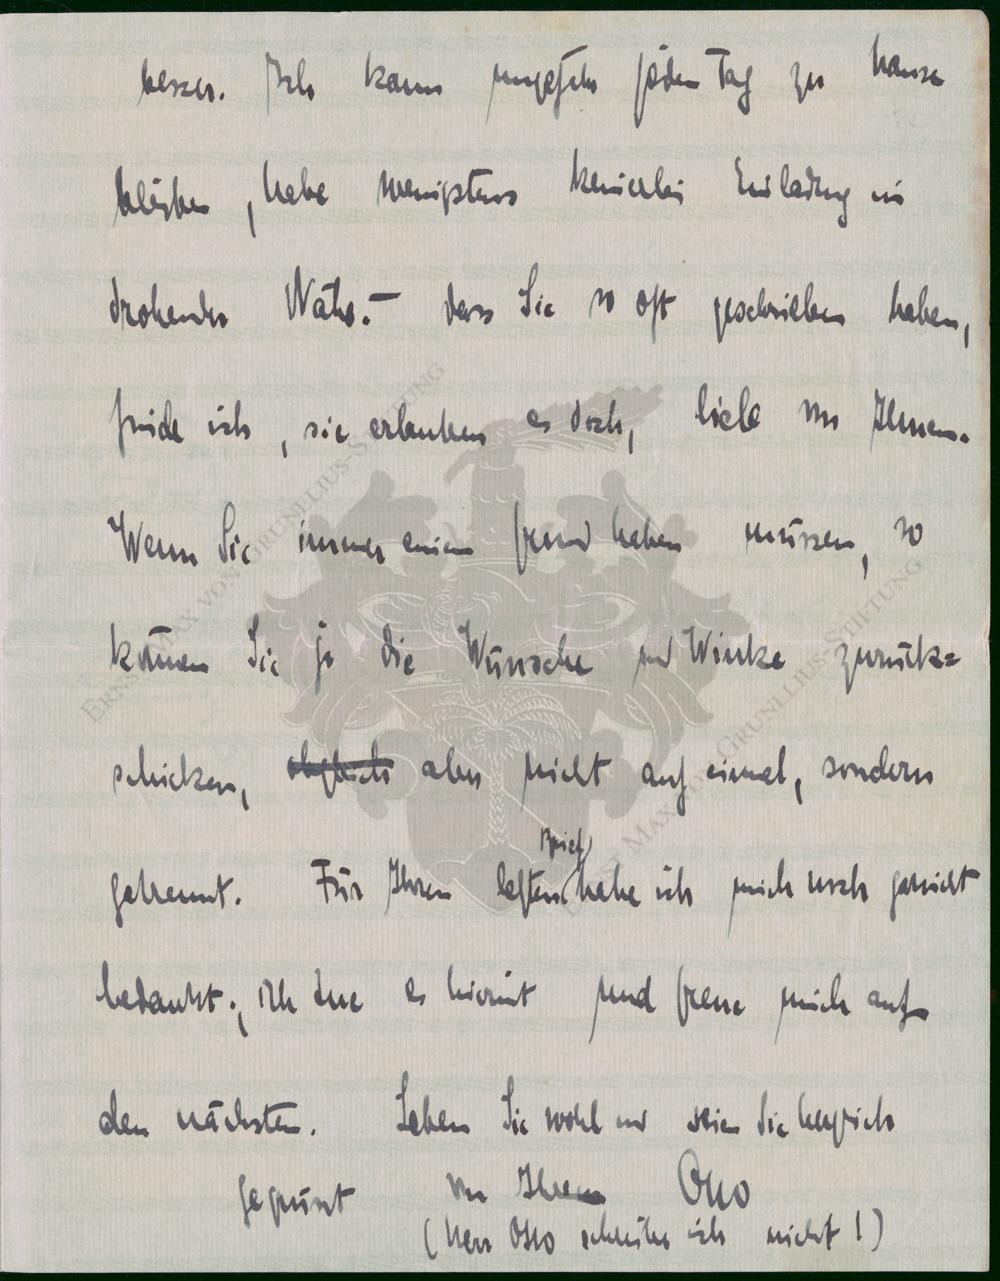 besser. Ich kann ungefähr jeden Tag zu hause
bleiben, habe wenigstens keinerlei Einladung in
drohender Nähe. – Dass Sie so oft geschrieben haben,
finde ich, sie erlauben es doch, lieb von Ihnen.
Wenn Sie immer einen Grund haben müssen, so
können Sie ja die Wünsche und Winke zurück=
schicken, aber nicht auf einmal, sondern
getrennt. Für Ihren letzten Brief habe ich mich noch garnicht
bedankt, ich tue es hiermit und freue mich auf
den nächsten. Leben Sie wohl und seien Sie herzlich
gegrüsst von Ihrem Otto
(Herr Otto schreibe ich nicht!)
ERNST MAX VON GRUNELIUS-STIFTUNG
ERNST MAX VON GRUNELIUS-STIFTUNG